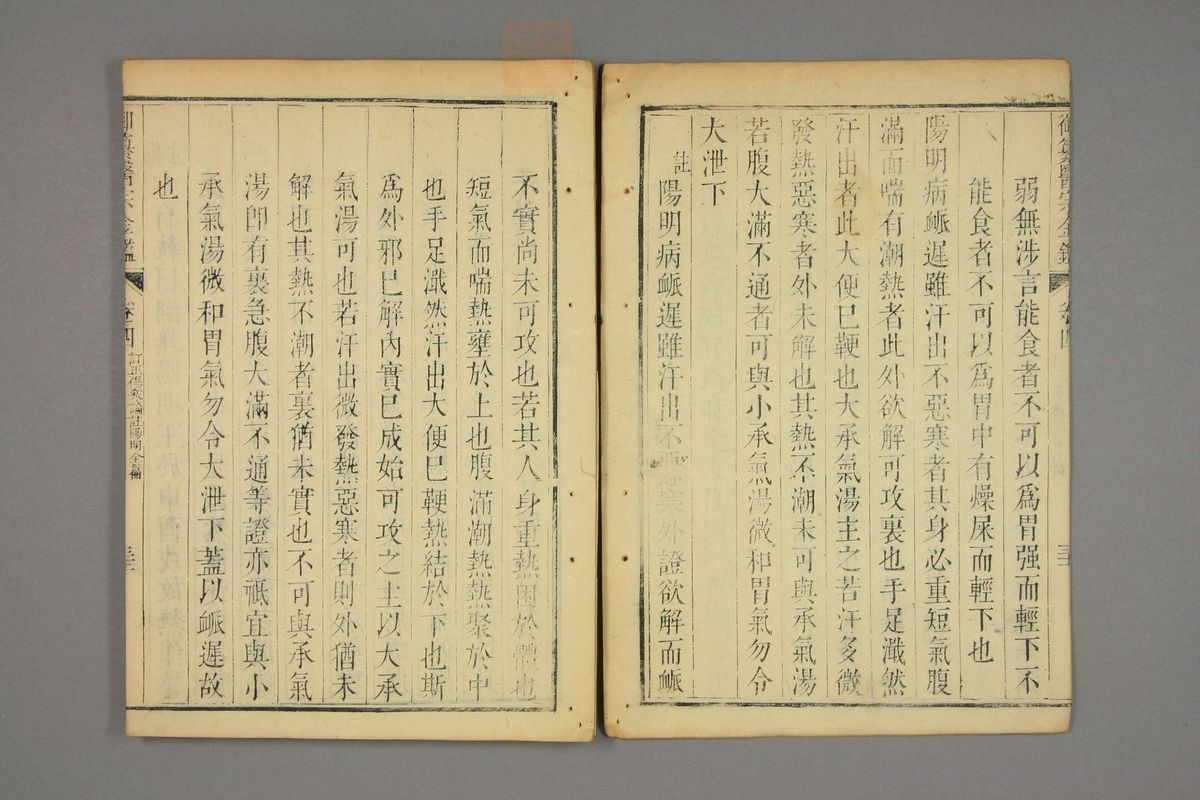 御纂醫宗金鑑 卷四 三十二
弱無涉言能食者不可以爲胃强而輕下不
能食者不可以爲胃中有燥屎而輕下也
陽明病脈遲雖汗出不惡寒者其身必重短氣腹
滿而喘有潮熱者此外欲解可攻裏也手足濈然
汗出者此大便已鞕也大承氣湯主之若汗多微
發熱惡寒者外未解也其熱不潮未可與承氣湯
若腹大滿不通者可與小承氣湯微和胃氣勿令
大泄下
註陽明病脈遲雖汗出不惡寒外證欲解而脈
不實尚未可攻也若其人身重熱困於體也
短氣而喘熱壅於上也腹滿潮熱熱聚於中
也手足濈然汗出大便已鞕熱結於下也斯
爲外邪已解內實已成始可攻之主以大承
氣湯可也若汗出微發熱惡寒者則外猶未
解也其熱不潮者裏猶未實也不可與承氣
湯卽有裏急腹大滿不通等證亦祇宜與小
承氣湯微和胃氣勿令大泄下蓋以脈遲故
也
御纂醫宗金鑑 卷四 訂正傷寒論註陽明全篇 三十三